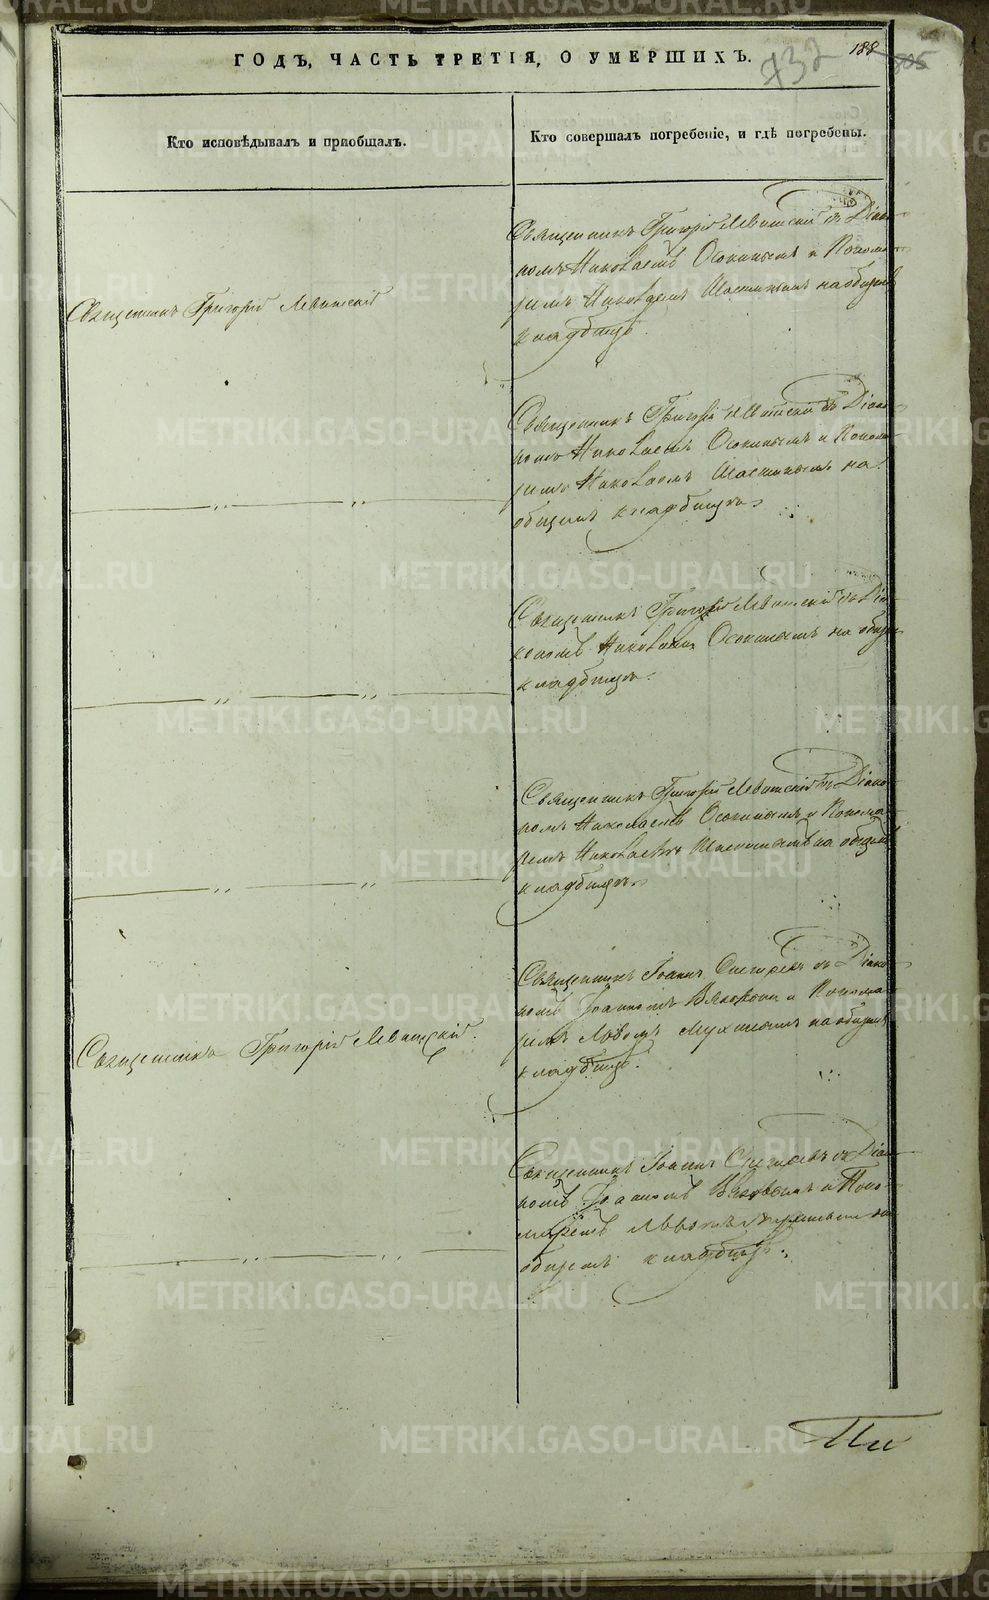 188
732
ГОДЪ, ЧАСТЬ ТРЕТІЯ, О УМЕРШИХЪ.
Кто исповѣдывалъ и пріобщалъ.
Кто совершалъ погребеніе, и гдѣ погребены.
Священникъ Григорій Левитскій
Священникъ Григорій Левитскій съ Діако
номъ Николаемъ Осокинымъ и Понома
ремъ Николаемъ на общемъ
кладбищѣ.
Священникъ Григорій Левитскій съ Діако
номъ Николаемъ Осокинымъ и Понома
ремъ Николаемъ на
общемъ кладбищѣ
Священникъ Григорій Левитскій съ Діа
кономъ Николаемъ Осокинымъ на общем
кладбищѣ.
Священникъ Григорій Левитскій съ Діако
номъ Николаемъ Осокинымъ и Понома
ремъ Николаемъ на общемъ
кладбищѣ
Священникъ Григорій Левитскій.
Священникъ Іоаннъ съ Діако
номъ Іоанномъ и Понома
ремъ на общемъ
кладбищѣ.
Священникъ Іоаннъ съ Діако
номъ Іоанномъ и Поно
маремъ Львомъ на
общемъ кладбищѣ.
METRIKI.GASO-URAL.RU